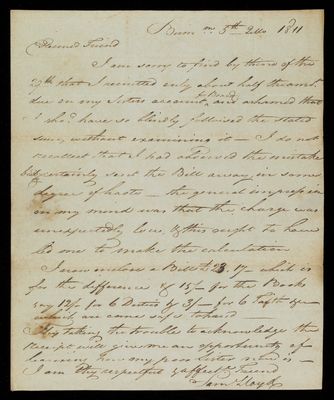 Birm.m 5th 2 Mo 1811
Esteemed Friend
I am sorry to find by thine of the
29th that I remitted only about half the amt.
due on my Sisters account, and ashamed that
I shd. have so blindly followed the stated
sum, without examining it — I do not
recollect that I had observed the mistake
but certainly sent the Bill away in some
degree of haste — the general impression
on my mind was that the charge was
unexpectedly low, & this ought to have
led me to make the calculation
I now inclose a Bill £ 23. 17 — which is
for the difference & 15/- for the Books
say 12/- for 6 & 3/- for 6
which are come safe to hand —
Thy taking the trouble to acknowledge the
receipt will give me an opportunity of
learning how my poor sister now is —
I am thy respectful & affect. Friend
Sam Lloyd